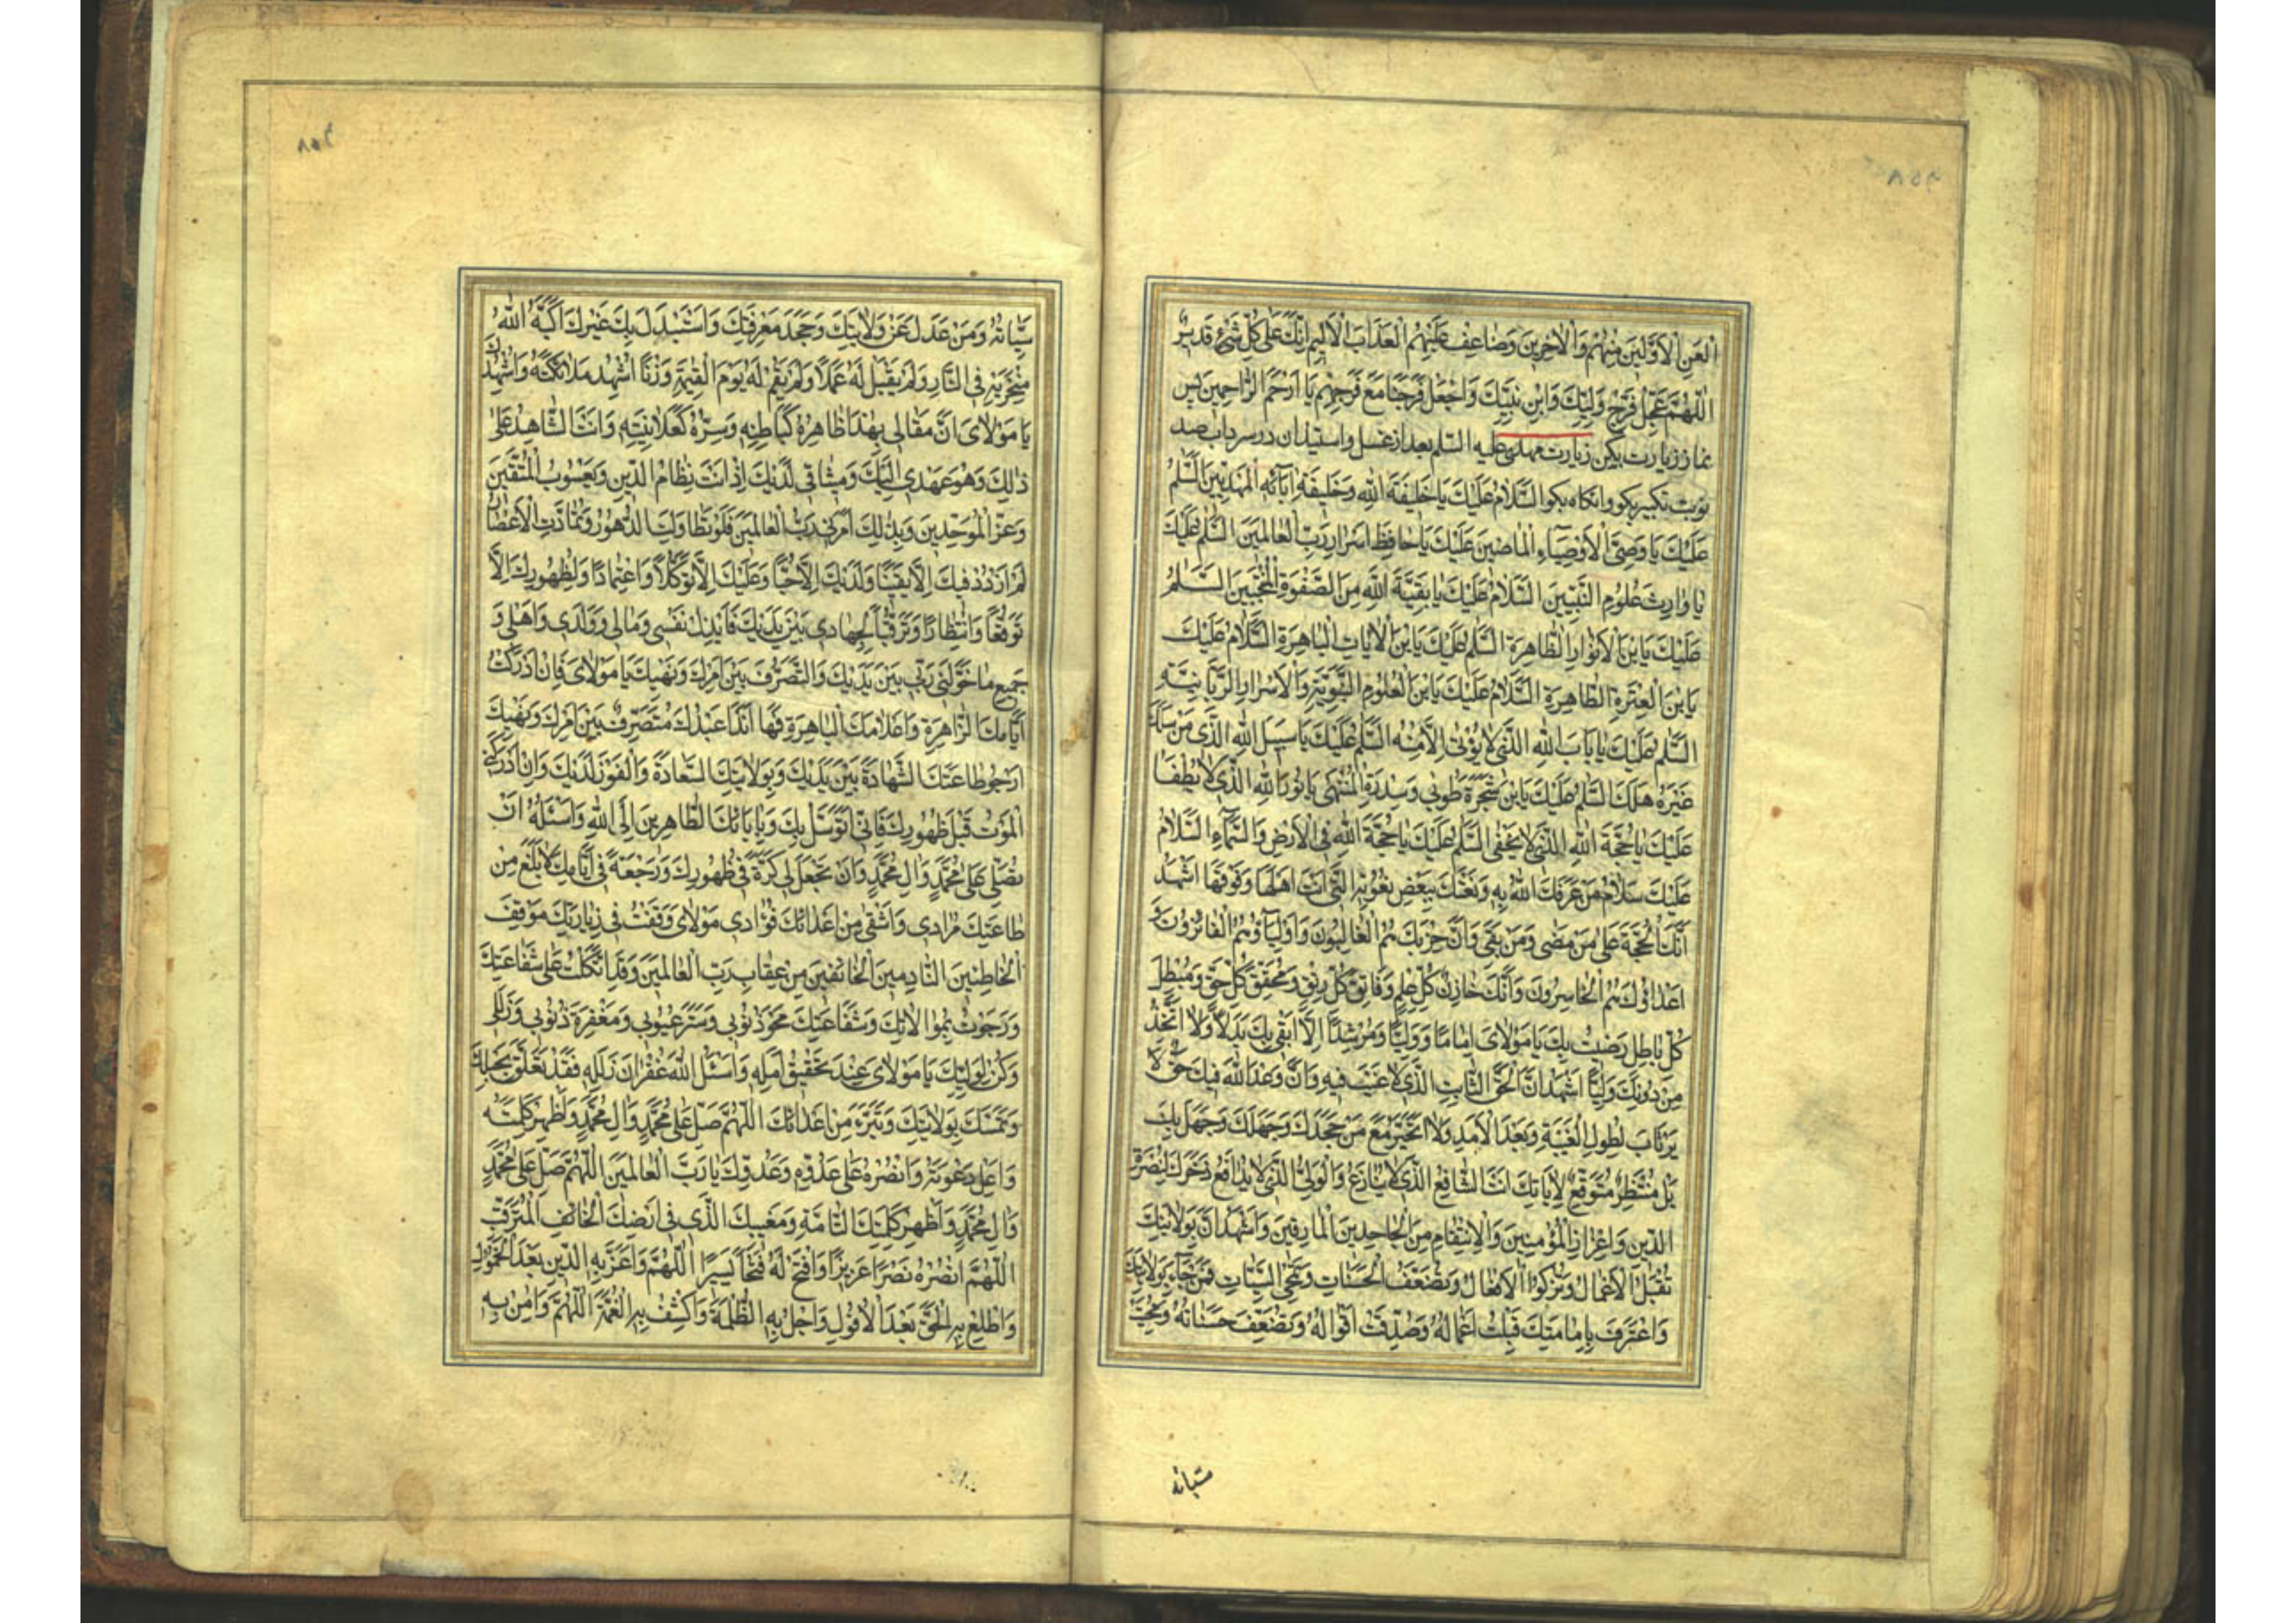 العَنِ الاَوَّلينَ مِنهُم وَالاخِرينَ وَضاعِف عَلَيهِمُ العَذابَ الاَليمَ اِنَّكَ عَلى كُلِّ شَيءٍ قَديرٌ
اَللّهُمَّ عَجِّل فَرَجَ وَلِيِّكَ وَابنِ نَبِيِّكَ وَاجعَل فَرَجَنا مَعَ فَرَجِهِم يا اَرحَمَ الرّاحِمينَ پس
نماز زیارت بکن زیارت مهدی علیه السّلم بعد از غسل و استیذان در سرداب صد
نوبت تکبیر بکو وانکاه بکو اَلسَّلامُ عَلَيكَ يا خَليفَةَ اللهِ وَخَليفَةَ ابآئِهِ المَهدِيّينَ السَّلمُ
عَلَيكَ يا وَصِيَّ الاَوصِيآءِ الماضينَ عَلَيكَ يا حافِظَ اَسرارِ رَبِّ العالَمينَ السَّلمُ عَلَيكَ
يا وارِثَ عُلومِ النَّبِيّينَ السَّلامُ عَلَيكَ يا بَقِيَّةَ اللهِ مِنَ الصَّفوَةِ المُنتَجَبينَ السَّلمُ
عَلَيكَ يَا بنَ الاَنوارِ الظّاهِرَةِ السَّلمُ عَلَيكَ يَا بنَ الاياتِ الباهِرَةِ السَّلامُ عَلَيكَ
يَا بنَ العِترَةِ الطّاهِرَةِ السَّلامُ عَلَيكَ يَا بنَ العُلومِ النَّبَوِيَّةِ وَالاَسرارِ الرَّبّانِيَّةِ
السَّلمُ عَلَيكَ يا بابَ اللهِ الَّذي لا يُؤتى اِلاّ مِنهُ السَّلمُ عَلَيكَ يا سَبيلَ اللهِ الَّذي مَن سَلَكَ
غَيرَهُ هَلَكَ السَّلمُ عَلَيكَ يَا بنَ شَجَرَةِ طوبى وَسِدرَةِ المُنتَهى يا نورَ اللهِ الَّذي لا يُطفا
عَلَيكَ يا حُجَّةَ اللهِ الَّذي لا يَخفى السَّلمُ عَلَيكَ يا حُجَّةَ اللهِ فِي الاَرضِ وَالسَّمآءِ السَّلامُ
عَلَيكَ سَلامُ مَن عَرَفَكَ اللهُ بِهِ وَنَعَتَكَ بِبَعضِ نُعوتِهِ الَّتي اَنتَ اَهلُها وَفَوقُها اَشهَدُ
اَنَّكَ الحُجَّةُ عَلى مَن مَضى وَمَن بَقِيَ وَاَنَّ حِزبَكَ هُمُ الغالِبونَ وَاَولِيآؤُهُمُ الفائِزونَ وَ
اَعداؤُكَ هُمُ الخاسِرونَ وَاَنَّكَ خازِنُ كُلِّ عِلمٍ وَفاتِقُ كُلِّ رَتقٍ وَمُحَقِّقُ كُلِّ حَقٍّ وَمُبطِلُ
كُلِّ باطِلٍ رَضيتُ بِكَ يا مَولايَ اِمامًا وَوَلِيًّا وَمُرشِدًا اِلاّ ابقى بِكَ بَدَلاً وَلا اَتَّخِذُ
مِن دونِكَ وَلِيًّا اَشهَدُ اَنَّ الحَقَّ الثّابِتَ الَّذي لا عَيبَ فيهِ وَاَنَّ وَعدَ اللهِ فيكَ حَقٌّ لا
يَرتابُ لِطولِ الغَيبَةِ وَبُعدِ الاَمَدِ وَلا اَتَحَيَّرُ مَعَ مَن جَحَدَكَ وَجَهِلَكَ وَجَهِلَ بِكَ
بَل مُنتَظِرٌ مُتَوَقِّعٌ لِاياتِكَ اَنتَ الشّافِعُ الَّذي لا يُنازَعُ وَالوَلِيُّ الَّذي لا يُدافَعُ ذَخَرَكَ لِنُصرَةِ
الدّينِ وَاعزازِ المُؤمِنينَ وَالاِنتِقامِ مِنَ الجاحِدينَ المارِقينَ وَاَشهَدُ اَنَّ بِوَلايَتِكَ
تُقبَلُ الاَعمالُ وَتَزكوا الاَفعالُ وَتُضَعَّفُ الحَسَناتُ وَتُمحى السَّيِّئاتُ فَمَن جآءَ بِوَلايَتِكَ
وَاعتَرَفَ بِاِمامَتِكَ قُبِلَت اَعمالُهُ وَصُدِّقَت اَقوالُهُ وَتُضَعَّفُ حَسَناتُهُ وَمُحِيَت
سیّاته
سَيِّاتُهُ وَمَن عَدَلَ عَن وَلايَتِكَ وَجَحَدَ مَعرِفَتَكَ وَاستَبدَلَ بِكَ غَيرَكَ اَكَبَّهُ اللهُ
مِنخَرَيهِ فِي النّارِ وَلَم يَقبَل لَهُ عَمَلاً وَلَم يُقِم لَهُ يَومَ القِيمَةِ وَزنًا اُشهِدُ مَلائِكَتَهُ وَاُشهِدُكَ
يا مَولايَ اَنَّ مَقالي بِهذا ظاهِرُهُ كَباطِنِهِ وَسِرُّهُ كَعَلانِيَتِهِ وَاَنتَ الشّاهِدُ عَلى
ذلِكَ وَهُوَ عَهدي اِلَيكَ وَميثاقي لَدَيكَ اِذ اَنتَ نِظامُ الدّينِ وَيَعسوبُ المُتَّقينَ
وَعِزُّ المُوَحِّدينَ وَبِذلِكَ اَمَرَني رَبُّ العالَمينَ فَلَو تَطاوَلَتِ الدُّهورُ وَتَمادَتِ الاَعصارُ
لَم اَزدَد فيكَ اِلاّ يَقينًا وَلَديكَ اِلاّ حُبًّا وَعَلَيكَ اِلاّ تَوَكُّلاً وَاعتِمادًا وَلِظُهورِكَ اِلاّ
تَوَقُّعًا وَانتِظارًا وَتَرَقُّبًا لِجِهادي بَينَ يَدَيكَ فَاَبذِلُ نَفسي وَمالي وَوَلَدي وَاَهلي وَ
جَميعَ ما خَوَّلَني رَبّي بَينَ يَدَيكَ وَالتَّصَرُّفَ بَينَ اَمرِكَ وَنَهيِكَ يا مَولايَ فَاِن اَدرَكتُ
اَيّامَكَ الزّاهِرَةَ وَاَعلامَكَ الباهِرَةَ فَها اَنَا ذا عَبدُكَ مُتَصَرِّفٌ بَينَ اَمرِكَ وَنَهيِكَ
اَرجو طاعَتَكَ الشَّهادَةَ بَينَ يَدَيكَ وَبِوَلايَتِكَ السَّعادَةَ وَالفَوزَ لَدَيكَ وَاِن اَدرَكَني
المَوتُ قَبلَ ظُهورِكَ فَاِنّي اَتَوَسَّلُ بِكَ وَبِابائِكَ الطّاهِرينَ اِلَى اللهِ وَاَسئَلُهُ اَن
يُصَلِّيَ عَلى مُحَمَّدٍ وَالِ مُحَمَّدٍ وَاَن يَجعَلَ لي كَرَّةً في ظُهورِكَ وَرَجعَةً في اَيّامِكَ لِاَبلُغَ مِن
طاعَتِكَ مُرادي وَاَشفي مِن اَعدائِكَ فُؤادي مَولايَ وَقَفتُ في زِيارَتِكَ مَوقِفَ
الخاطِئينَ النّادِمينَ الخائِفينَ مِن عِقابِ رَبِّ العالَمينَ وَقَدِ اتَّكَلتُ عَلى شَفاعَتِكَ
وَرَجَوتُ بِمُوالاتِكَ وَشَفاعَتِكَ مَحوَ ذُنوبي وَسَترَ عُيوبي وَمَغفِرَةَ ذُنوبي وَزَلَلي
وَكُن لِوَلِيِّكَ يا مَولايَ عِندَ تَحقيقِ اَمَلِهِ وَاسئَلِ اللهَ غُفرانَ زَلَلِهِ فَقَد تَعَلَّقَ بِحَبلِكَ
وَتَمَسَّكَ بِوَلايَتِكَ وَتَبَرَّءَ مِن اَعدائِكَ اَللّهُمَّ صَلِّ عَلى مُحَمَّدٍ وَالِ مُحَمَّدٍ وَاَظهِر كَلِمَتَهُ
وَاَعلِ دَعوَتَهُ وَانصُرهُ عَلى عَدُوِّهِ وَعَدُوِّكَ يا رَبَّ العالَمينَ اَللّهُمَّ صَلِّ عَلى مُحَمَّدٍ
وَالِ مُحَمَّدٍ وَاَظهِر كَلِمَتَكَ التّامَّةَ وَمَغيبَكَ الَّذي في اَرضِكَ الخائِفَ المُتَرَقِّبَ
اَللّهُمَّ انصُرهُ نَصرًا عَزيزًا وَافتَح لَهُ فَتحًا يَسيرًا اَللّهُمَّ وَاَعِزَّ بِهِ الدّينَ بَعدَ الخُمولِ
وَاَطلِع بِهِ الحَقَّ بَعدَ الاُفولِ وَاَجلِ بِهِ الظُّلمَةَ وَاكشِف بِهِ الغُمَّةَ اَللّهُمَّ وَامِن بِهِ